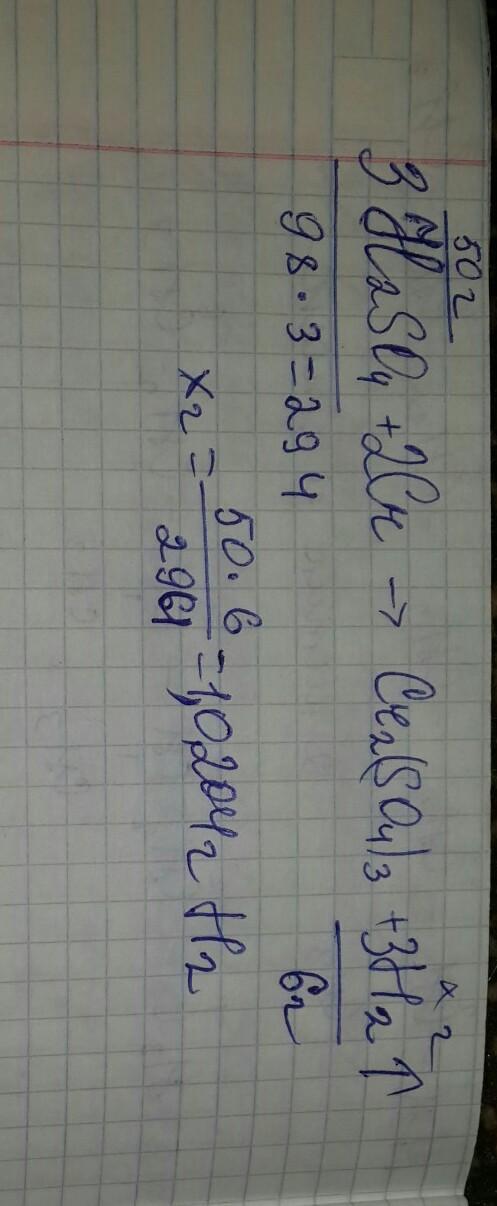 50 г x г
3 H₂SO₄ + 2Cr → Cr₂(SO₄)₃ + 3H₂ ↑
98 · 3 = 294 6г
x г = 50 · 6 / 294 = 1,0204 г H₂